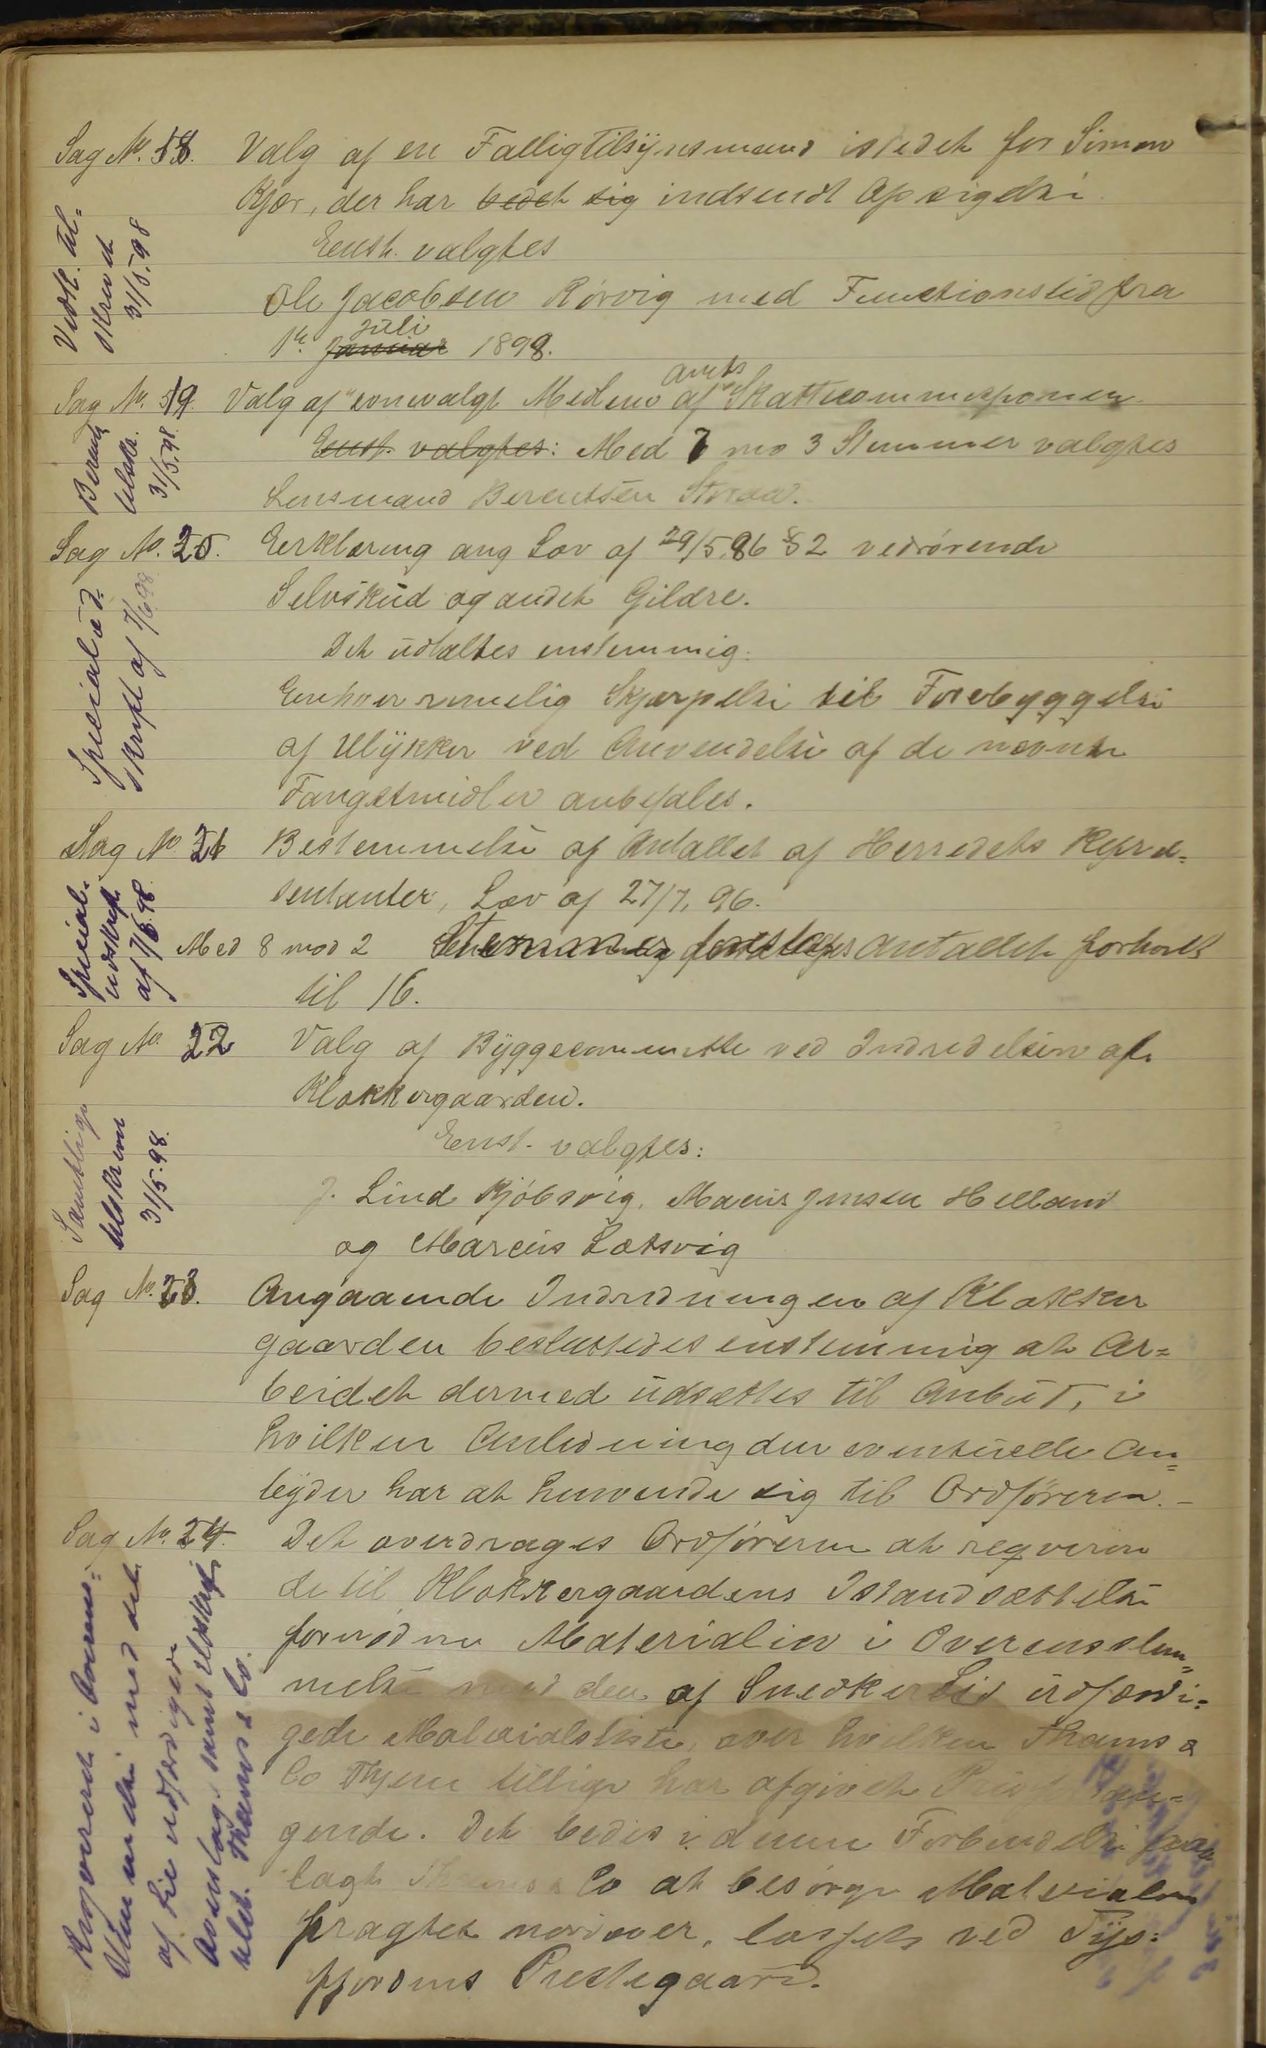 Sag No. 18. Valg af en Fattigtilsynsmand istedet for Simon
Kjær, der har bedet sig indsendt Opsigelse.
Enst. valgtes
Ole Jacobsen Rørvig med Functionstid fra
1ste Januar Juli 1898.
Vedk. til-
skrevet
31/5 98
Sag No. 19. Valg af Medlem af Amts Skattecommissionen.
Enst. valgtes: Med 7 mod 3 Stemmer valgtes
Lensmand Berentsen
Berents.
tilskr.
31/5.98.
Sag No. 20. Erklæring ang Lov af 29/5.86 § 2 vedrørende
Selvskud og andet Gildre.
Det udtaltes enstemmig:
Enhver rimelig Skjærpelse til Forebyggelse
af Ulykker ved Anvendelse af de nævnte
Fangstmidler anbefales.
Specialud-
skrift af 7/6 98
Sag No. 21 Bestemmelse af Antallet af Herredets Repræ-
sentanter, Lov af 27/7, 96.
Med 8 mod 2 Stemmer foreslaaes Antallet
til 16.
Special-
udskrift
af 7/6.98
Sag No. 22 Valg af Byggecommitte ved Indredelsen af
Klokkergaarden.
Enst. valgtes:
J. Lind Kjøbsvig, Jensen Helland
og Marcus Lotsvig
Samtlige
tilskrevne
31/5.98.
Sag No. 23. Angaaende Indredningen af Klokker
gaarden besluttedes enstemmig at Ar-
beidet dermed udsættes til Anbud, i
hvilken Anledning den eventuelle An-
byder har at henvende sig til Ordføreren. -
Sag No. 24. Det overdrages Ordføreren at reqverere
de til Klokkergaardens Istandsættelse
fornødne Materialier i Overensstem-
melse med den af Snedker Lie udfærdi-
gede Materialliste, over hvilken Thams &
Co tillige har afgivet
gende. Det bedes i denne Forbindelse paa-
lagt Thams & Co at besørge Materialerne
fragtet nordover, lossets ved Tys-
fjordens Prestegaard.
Reqvireret i Overens-
stemmelse med det
af Lie udfærdigede
Overslag, samt Udskrift
tilst. Thams & Co.